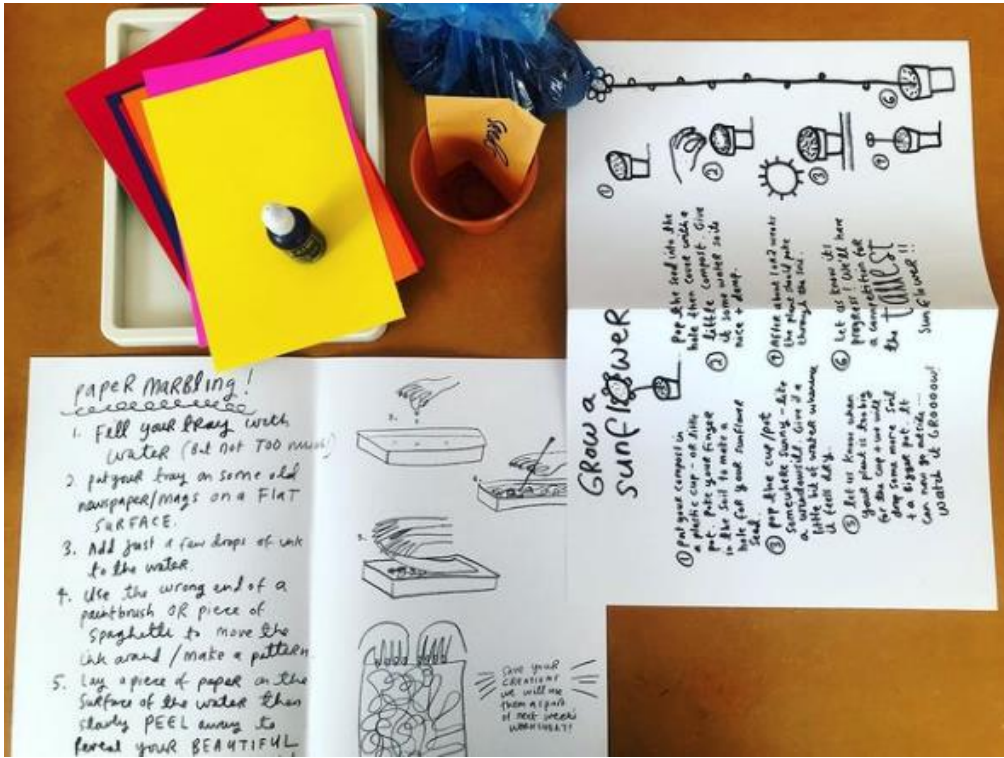 PAPER MARBLING!
1. Fill your tray with
water (But not TOO much)
2 put your tray on some old
newspaper/mags on a FLAT
SURFACE.
3. Add just a few drops of ink
to the water.
4. Use the wrong end of a
paintbrush OR piece of
Spaghetti to move the
ink around / make a pattern.
5. Lay a piece of paper on the
Surface of the water then
slowly PEEL away to
Reveal your BEAUTIFUL
SAVE YOUR
CREATIONS
we will use
them as part
of next week's
WORKSHEET!
seed
GROW a
sunflower
① Put your compost in
a plastic cup - or little
pot. Poke your finger
in the soil to make a
hole for your sunflower
seed
② Pop the seed into the
hole then cover with a
little compost. Give
it some water so its
nice + damp.
③ Pop the cup/pot
somewhere sunny - like
a windowsill. Give it a
little bit of water whenever
it feels dry.
④ After about 1 or 2 weeks
the plant should poke
through the soil.
⑤ let us know when
your plant is too big
for the cup + we will
drop some more soil
+ a bigger pot. It
can now go outside...
watch it GROOOOW!
⑥ Let us know its
progress! We'll have
a competition for
the TALLEST
sunflower!!
①
②
③
④
⑥